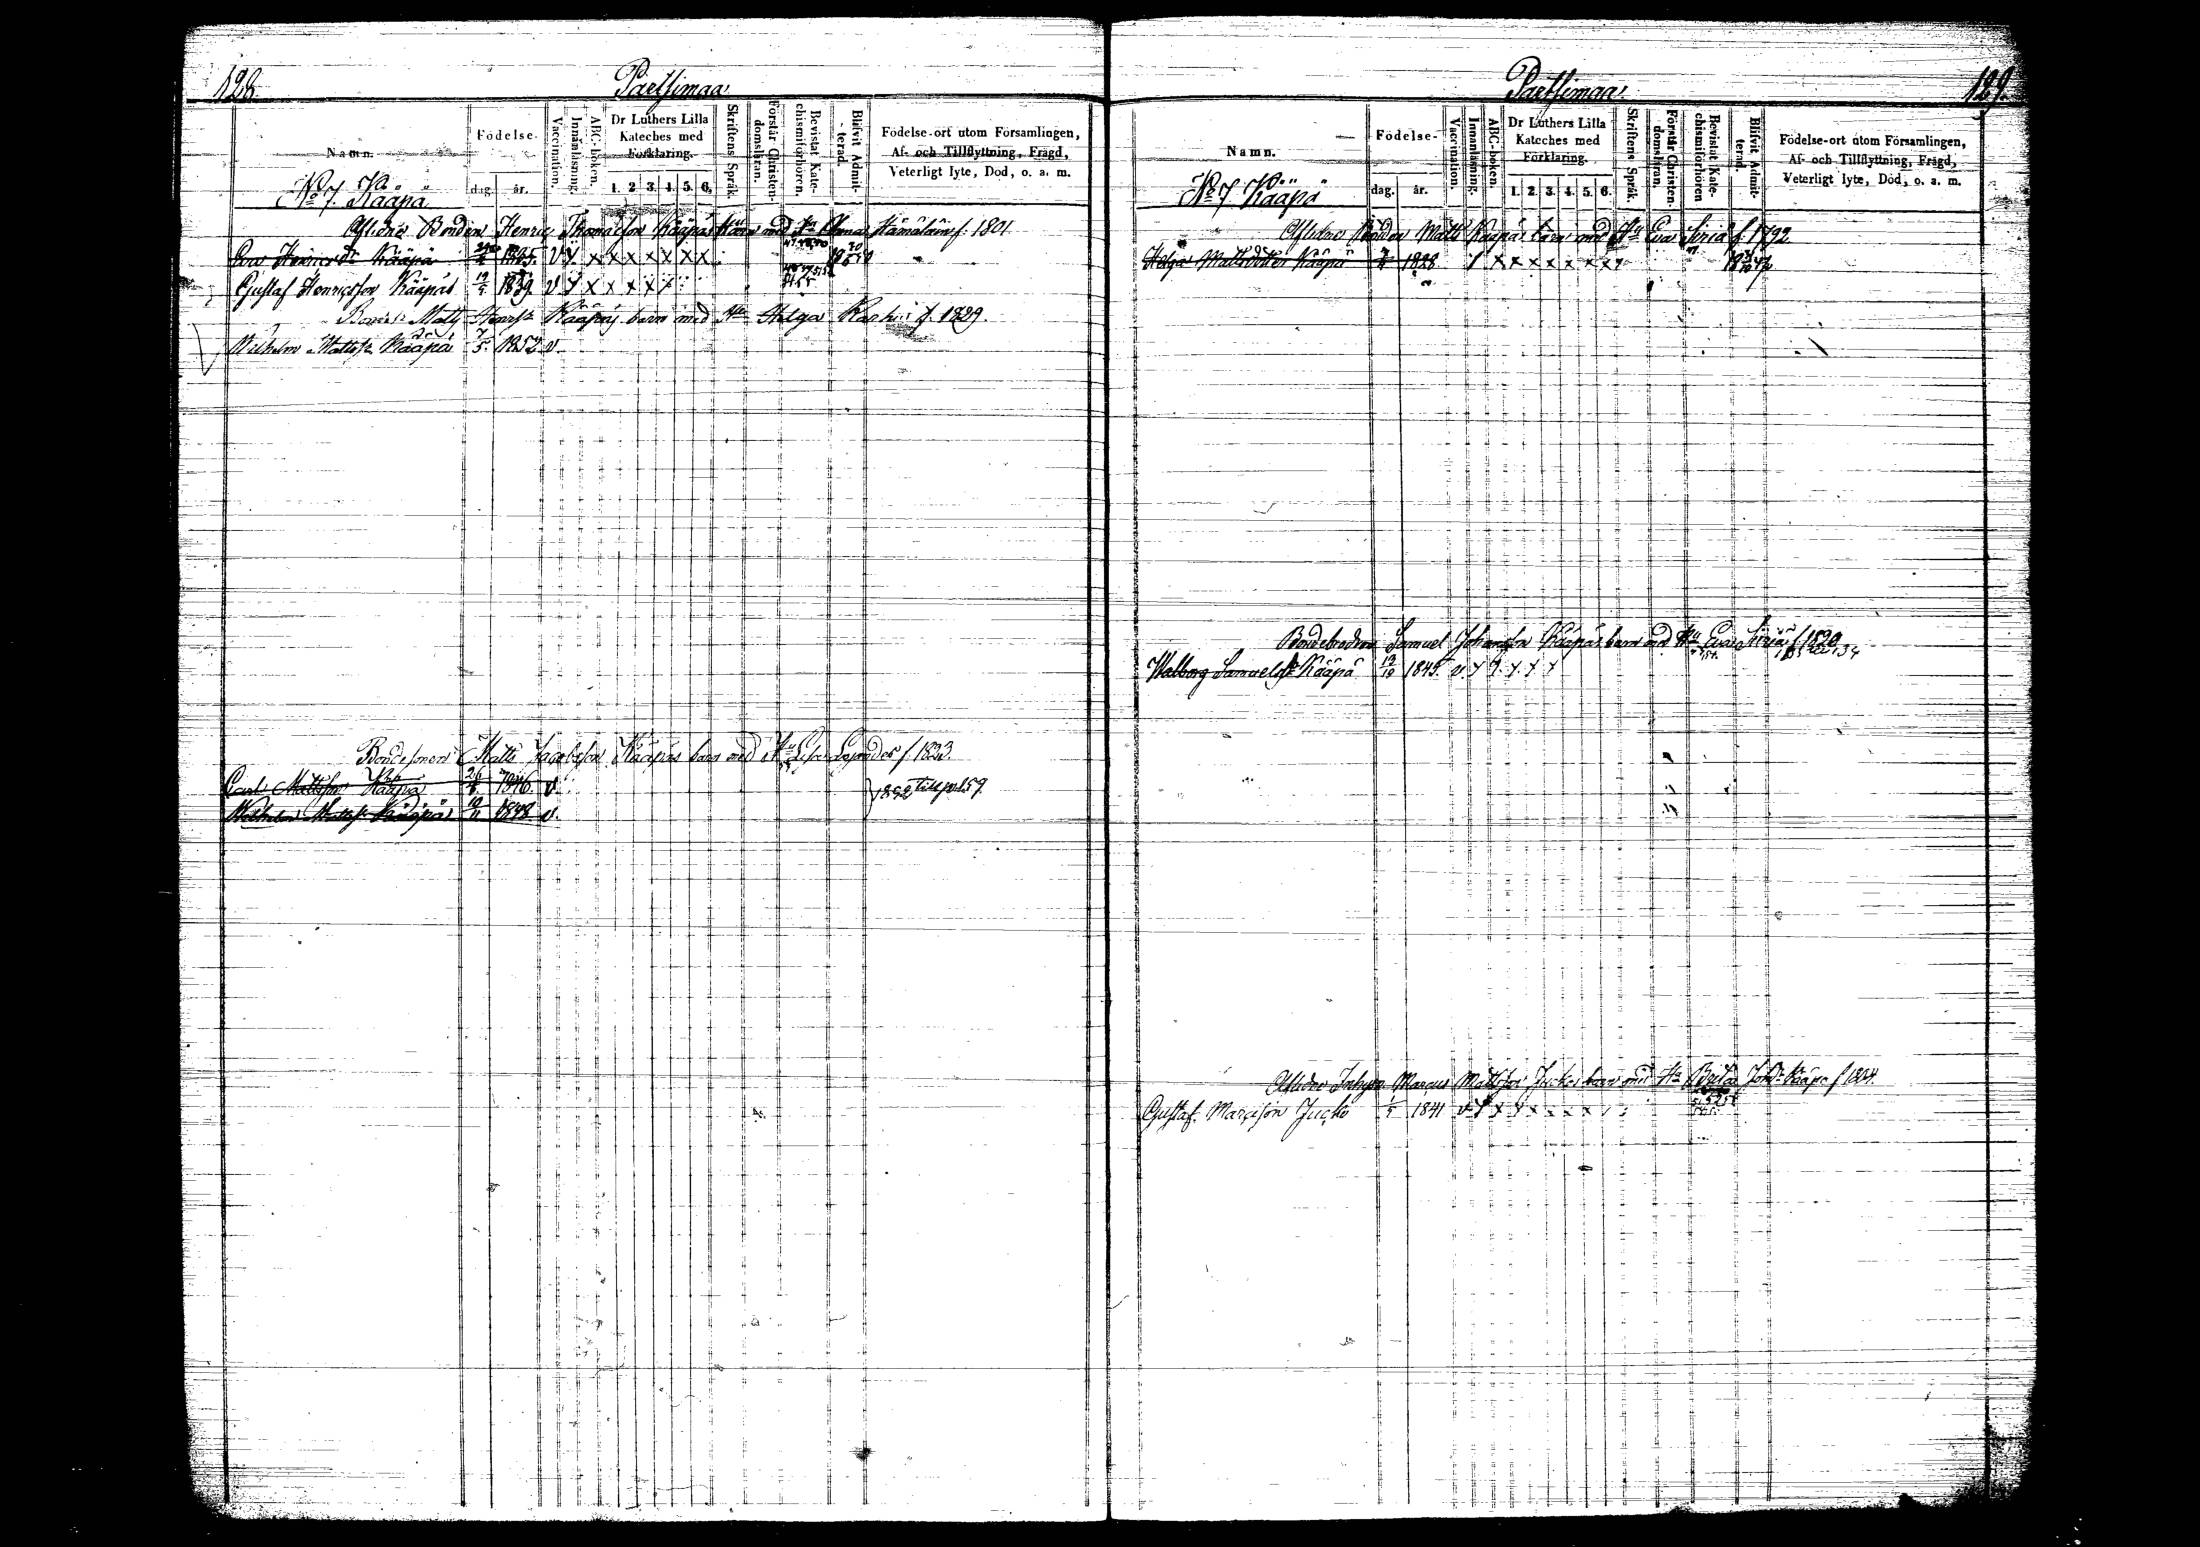 128.
Paetsimaa
Namn.
Födelse.
dag.
år.
Vaccination.
Innanläsning.
ABC-boken.
Dr Luthers Lilla
Kateches med
Förklaring.
1. 2. 3. 4. 5. 6.
Skriftens Språk.
Förstår Christen-
domsläran.
Bevistat Kate-
chismiförhören.
Blifvit Admit-
terad.
Födelse-ort utom Församlingen,
Af- och Tillflyttning, Frägd,
Veterligt lyte, Död, o. a. m.
No 7. Kääpä
Aflidne Bonden Henric Thomasson Kääpäs barn med Hu Anna Hämäläin f. 1801.
Eva Henricsdr Kääpä V Y x x x x x x x
Gustaf Henricsson Kääpä 12/5 1839. V Y x x x x x
Matts Henrss Kääpäs barn med Hu Helga f. 1829.
Wilhelm Mattss Kääpä 7/5 1852 v.
Bondesonen Matts Jacobsson Kääpäs barn med Hu Lisa f 1823.
Carl Mattsson Kääpä 26/8 1846 v.
1852 till pol 159
Wilhelm Mattss Kääpä 10/11 1848 v.
129.
Paetsimaa
Namn.
Födelse-
dag.
år.
Vaccination.
Innanläsning.
ABC-boken.
Dr Luthers Lilla
Kateches med
Förklaring.
1. 2. 3. 4. 5. 6.
Skriftens Språk.
Förstår Christen-
domsläran.
Bevistat Kate-
chismiförhören
Blifvit Admit-
terad.
Födelse-ort utom Församlingen,
Af- och Tillflyttning, Frägd,
Veterligt lyte, Död, o. a. m.
No 7 Kääpä
Aflidne Bonden Matts Kääpäs barn med Hu Eva Siriä f. 1792.
Helga Mattsdotter Kääpä 1828 Y x x x x x x x
Bondebrodren Samuel Johansson Kääpäs barn med Hu Eva Siriä f 1820
Walborg Samuelsdr Kääpä 12/10 1845. v. Y Y. Y. Y Y
Aflidne Inhyses Marcus Mattsson Juckos barn med Hu Brita Johdr Kääpä f 1804.
Gustaf Marcsson Jucko 1/5 1841 v Y x x x x x x